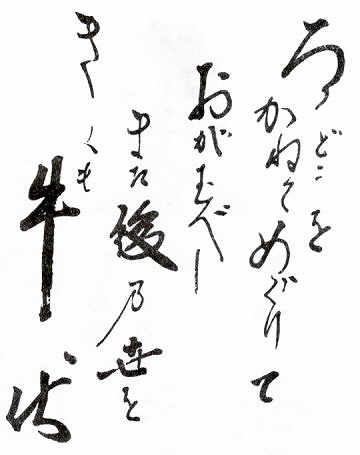 ろくどうを
かねてめぐりて
おがむべし
また後乃世を
きくも牛伏